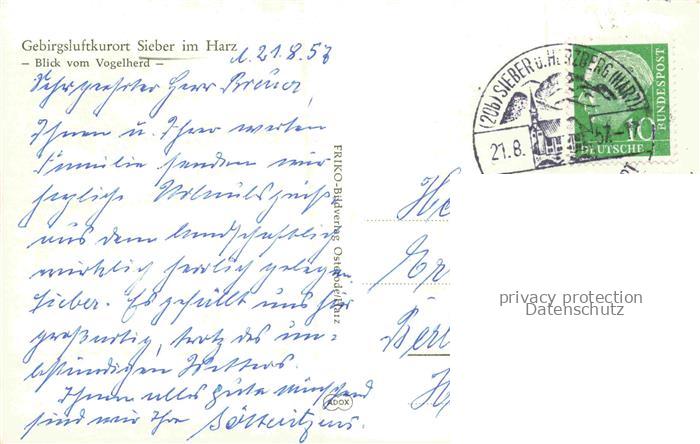 Gebirgsluftkurort Sieber im Harz
– Blick vom Vogelherd –
d. 21.8.57
Sehr geehrter Herr Breuer,
Ihnen u. Ihrer werten
Familie senden wir
herzliche Urlaubsgrüße
aus dem landschaftlich
wirklich herrlich gelegenen
Sieber. Es gefällt uns hier
großartig, trotz des un-
beständigen Wetters.
Ihnen alles gute wünschend
sind wir Ihre
FRIKO-Bildverlag Osterode/Harz
ADOX
(20b) SIEBER ü. HERZBERG (HARZ)
21.8.
10
DEUTSCHE
BUNDESPOST
privacy protection
Datenschutz